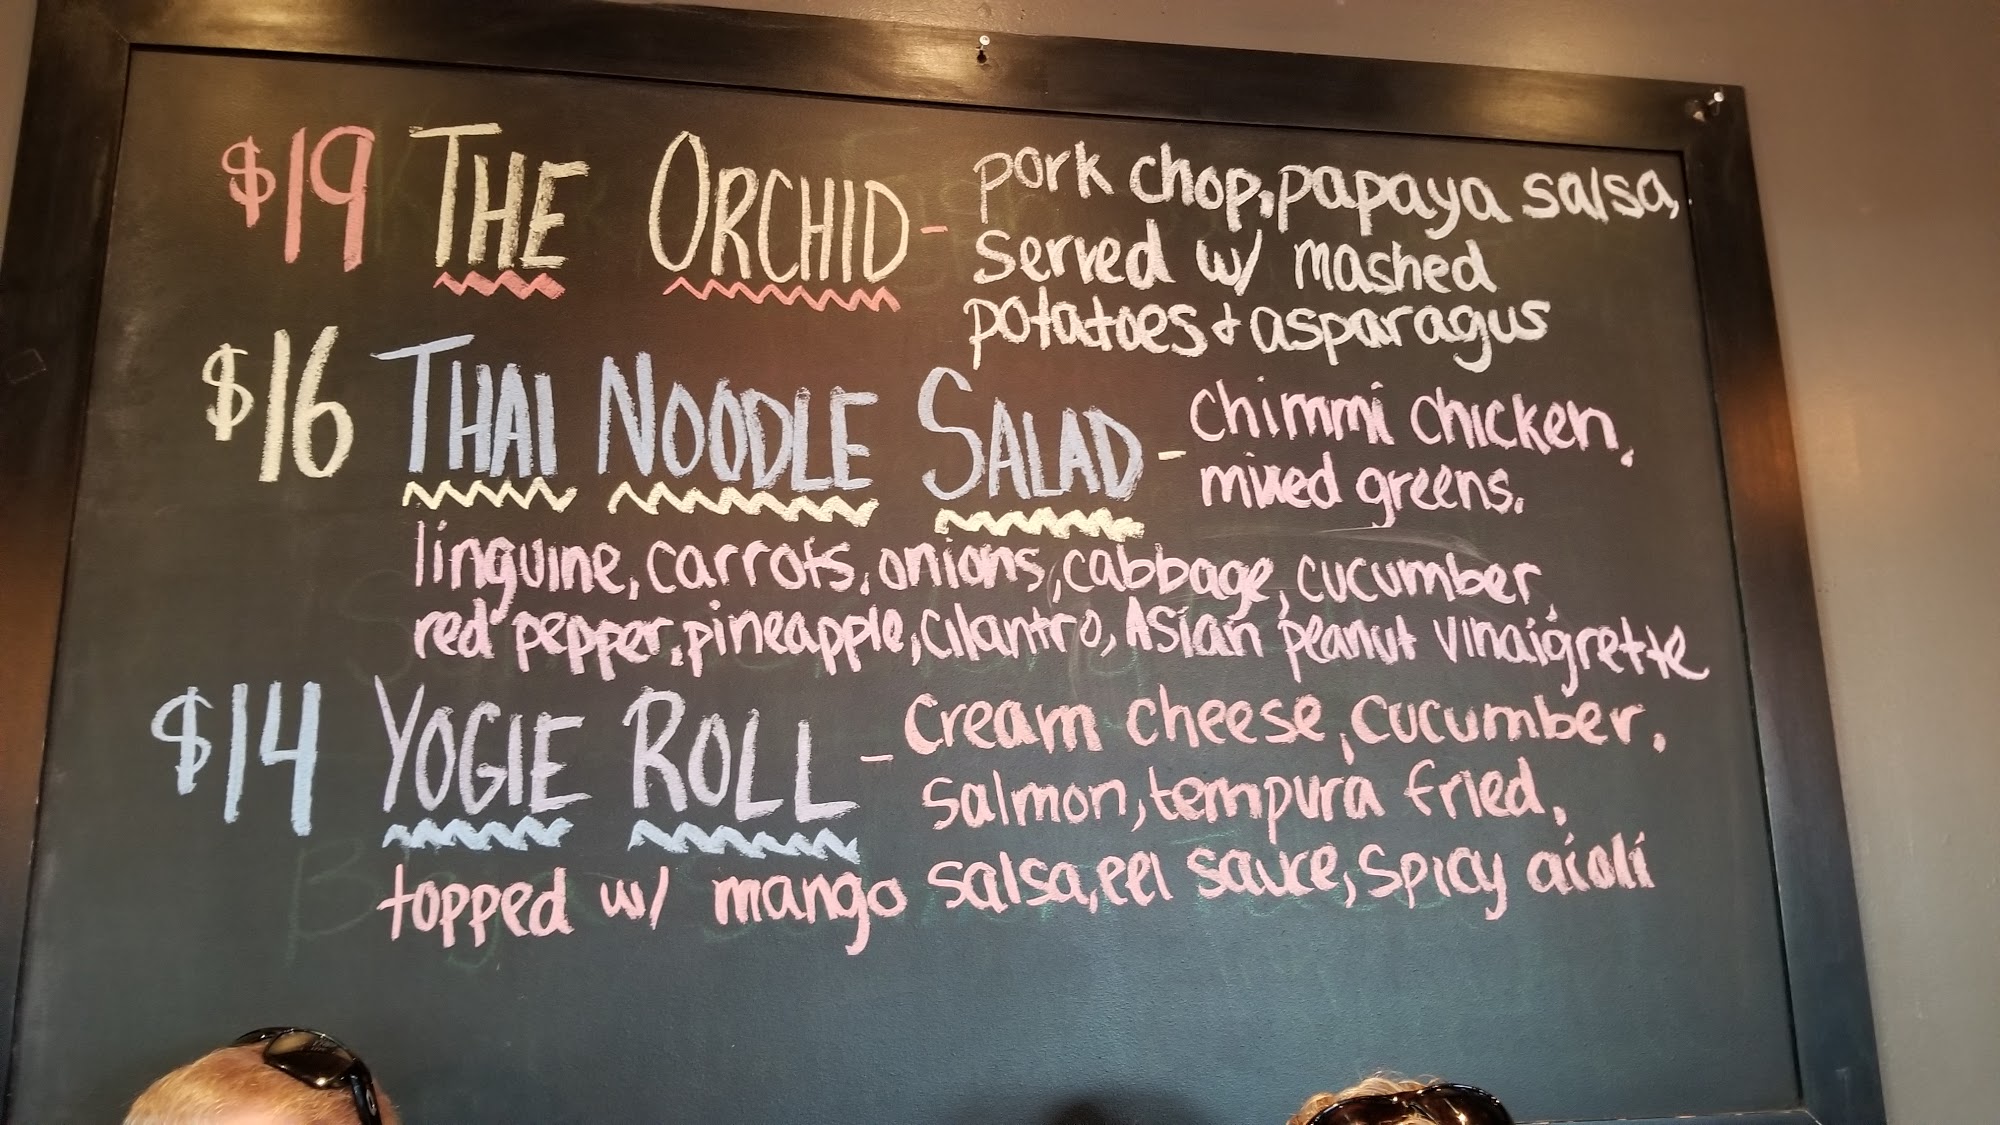 $19 THE ORCHID - pork chop, papaya salsa,
served w/ mashed
potatoes & asparagus
$16 THAI NOODLE SALAD - chimmi chicken,
mixed greens,
linguine, carrots, onions, cabbage, cucumber,
red pepper, pineapple, cilantro, Asian peanut vinaigrette
$14 YOGIE ROLL - cream cheese, cucumber,
salmon, tempura fried,
topped w/ mango salsa, eel sauce, spicy aioli